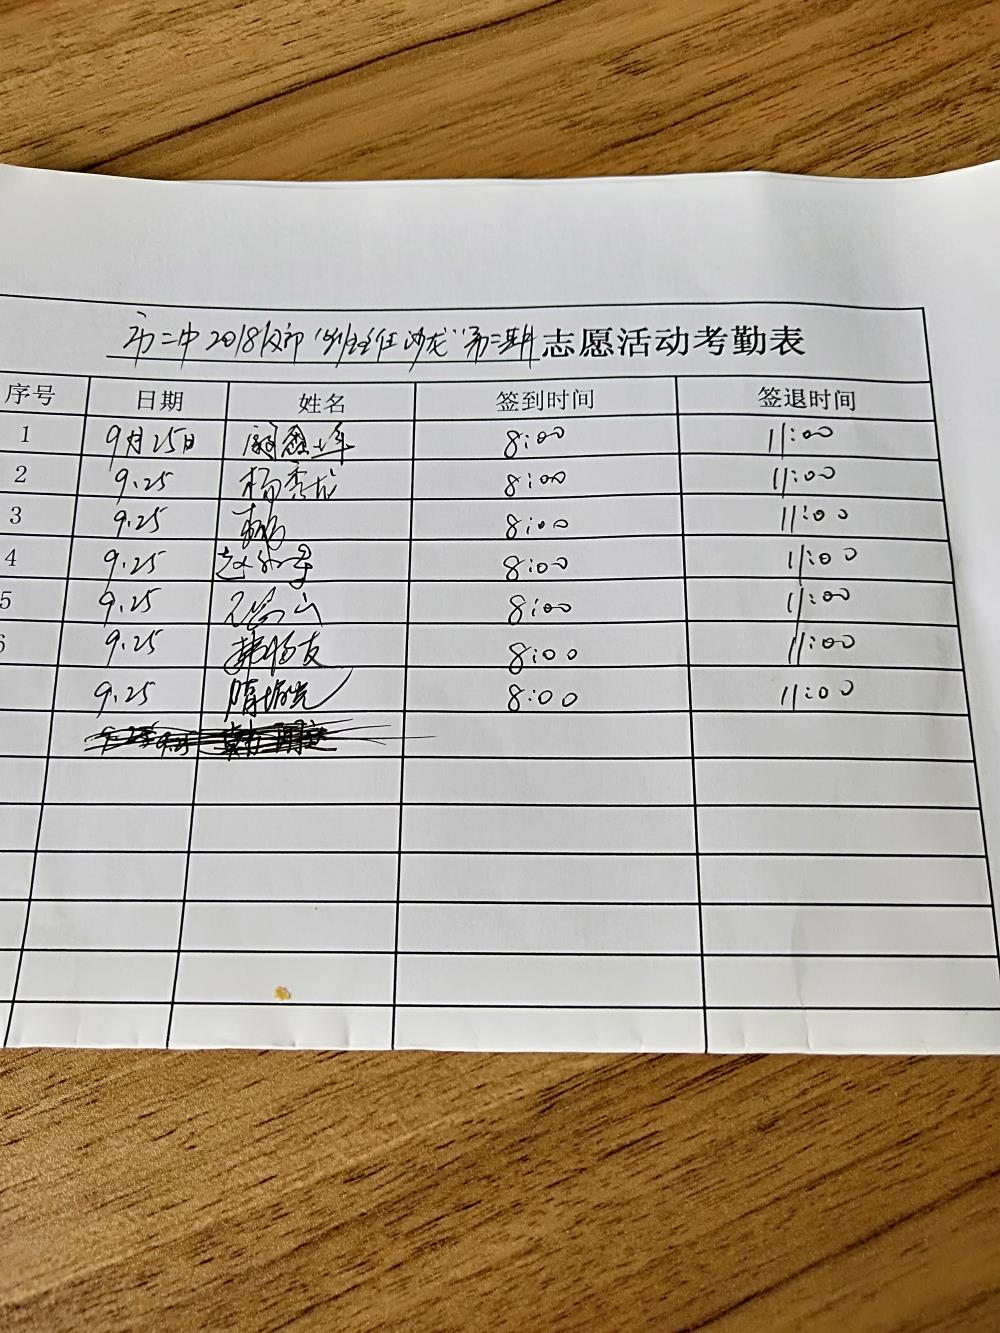 市二中2018级部"班主任沙龙"第二期志愿活动考勤表
序号 日期 姓名 签到时间 签退时间
1 9月25日 8:00 11:00
2 9.25 杨秀龙 8:00 11:00
3 9.25 8:00 11:00
4 9.25 8:00 11:00
5 9.25 8:00 11:00
9.25 韩杨友 8:00 11:00
9.25 8:00 11:00